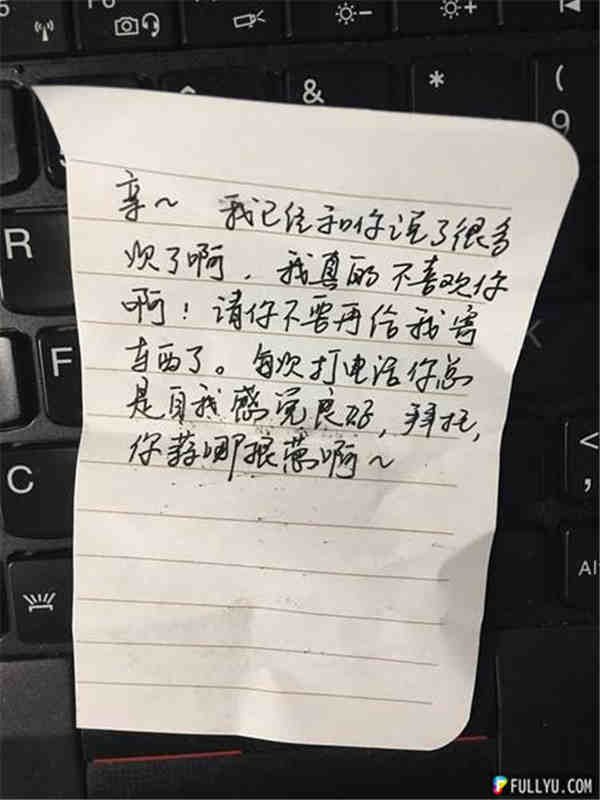 亲~ 我已经和你说了很多
次了啊，我真的不喜欢你
啊！请你不要再给我寄
东西了。每次打电话你总
是自我感觉良好，拜托，
你蒜哪根葱啊~
F6
&
*
(
9
R
F
C
K
<
,
Alt
FULLYU.COM